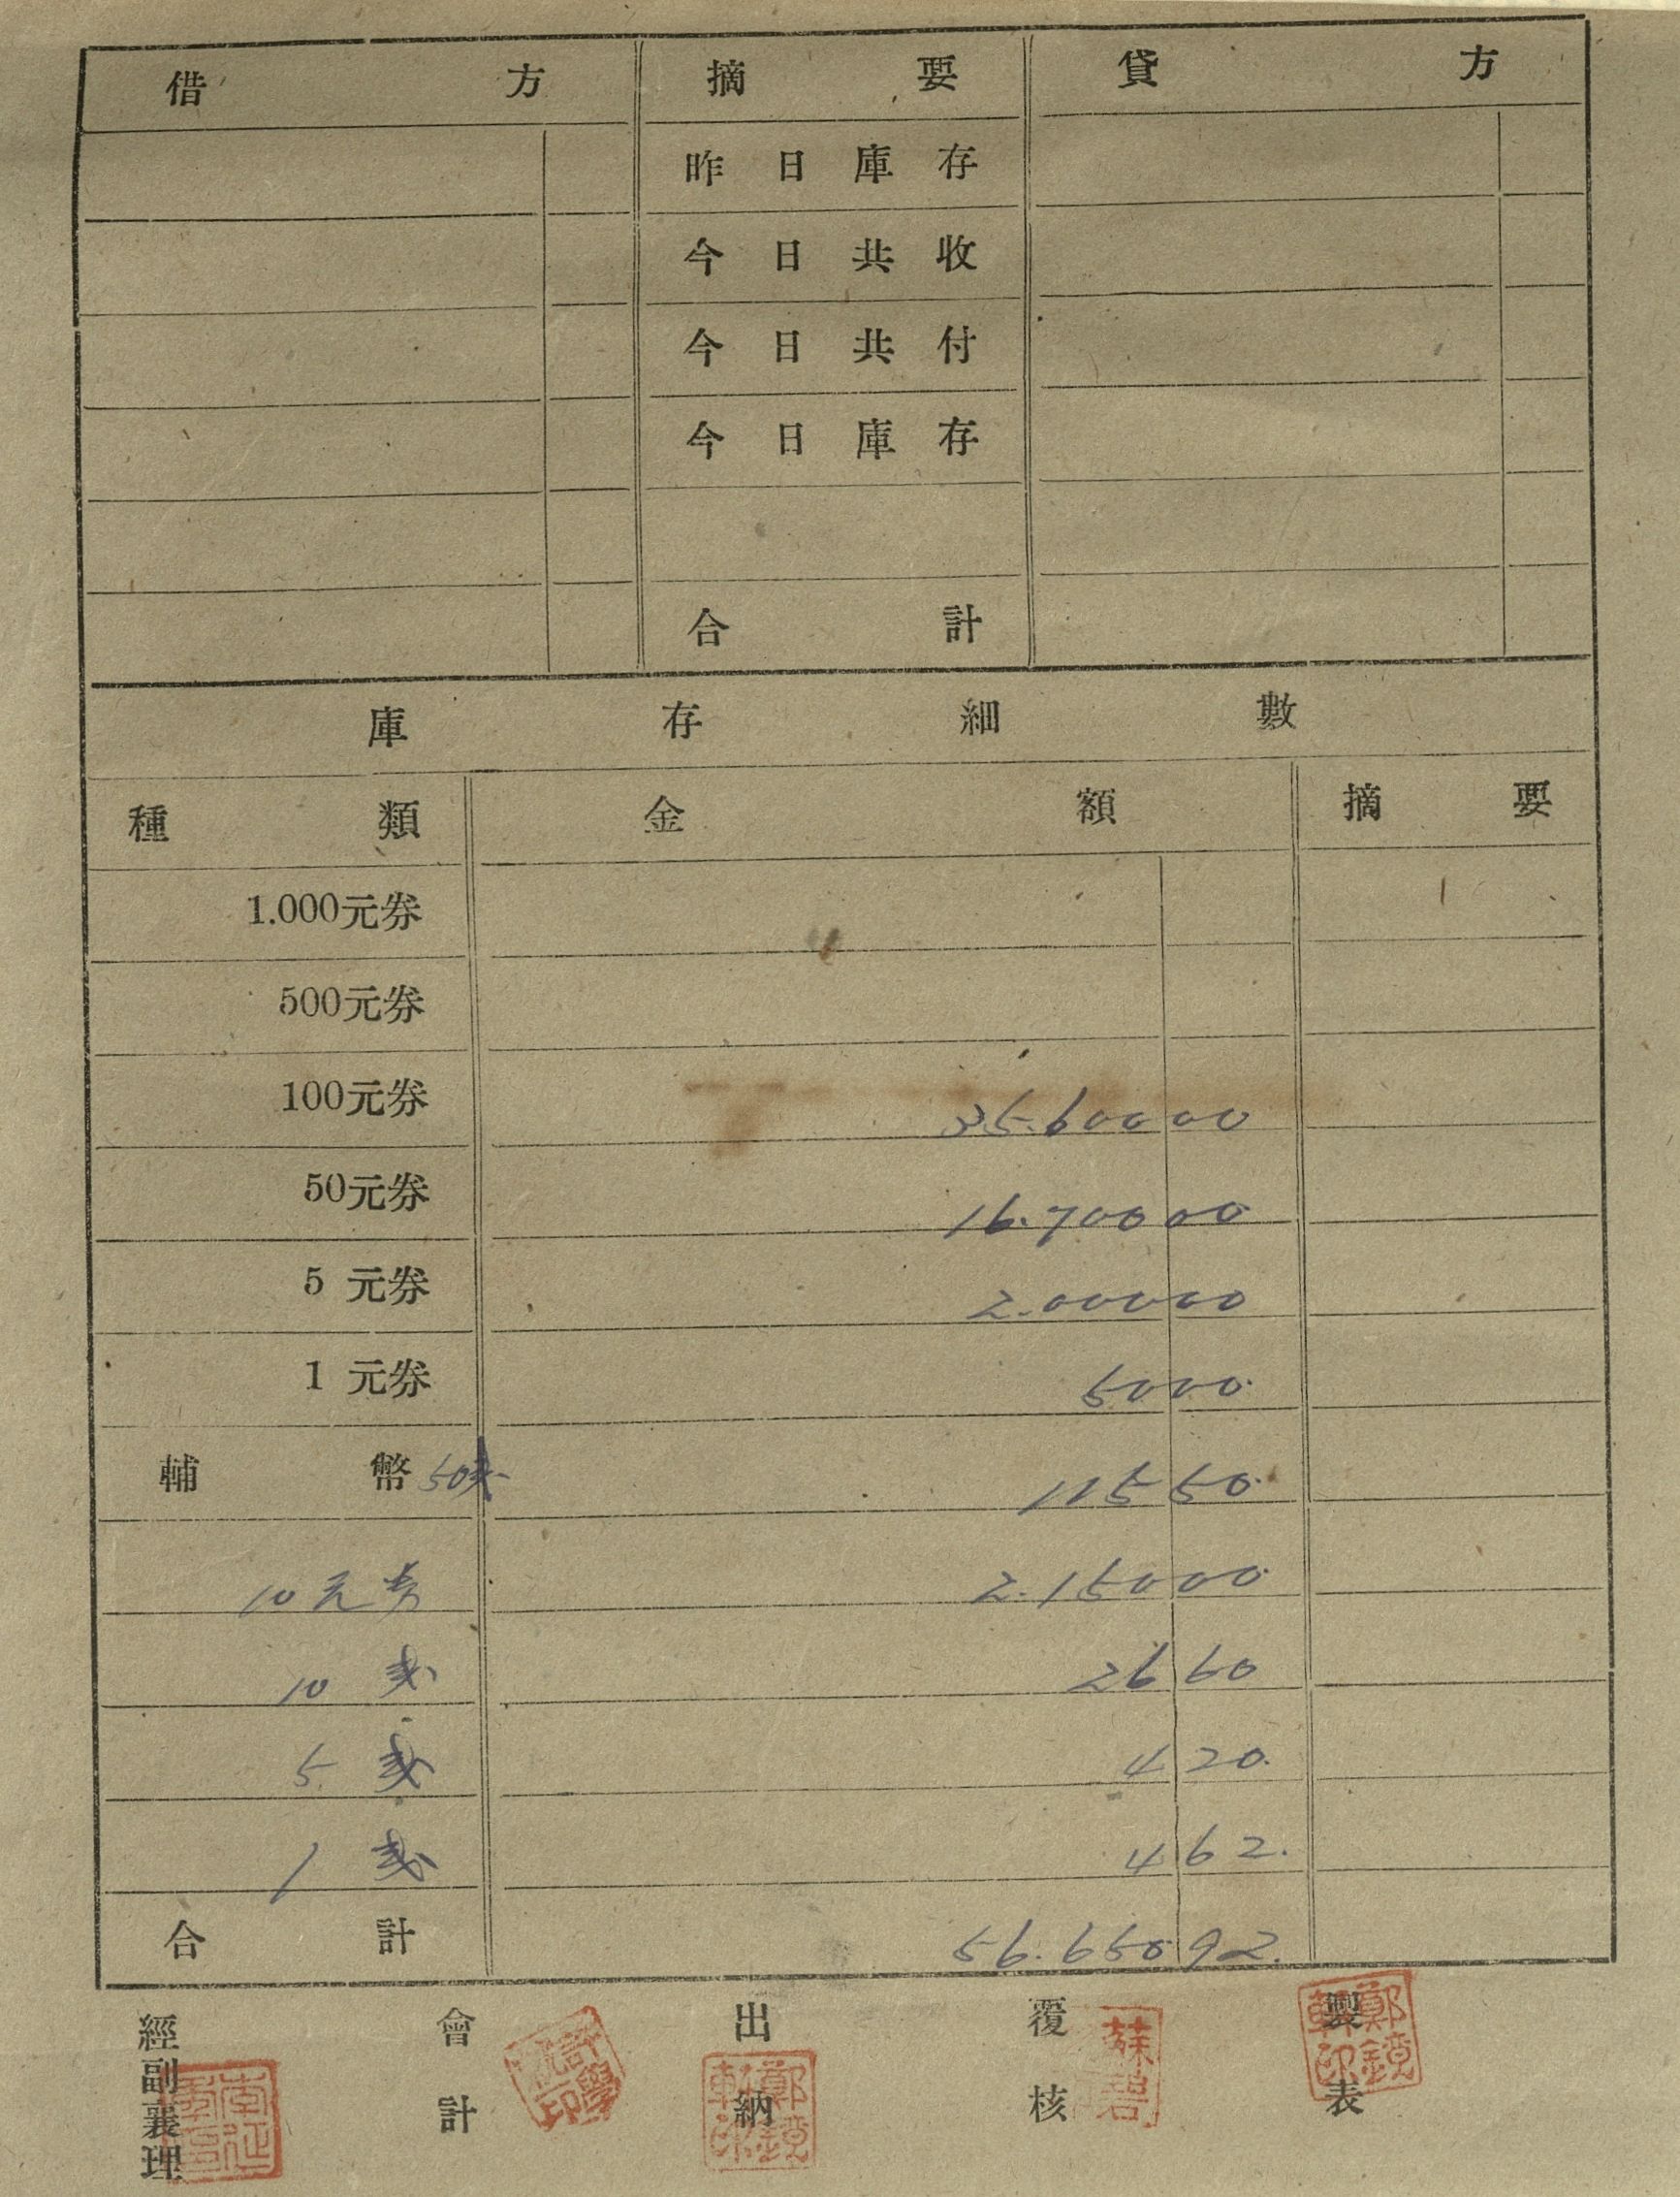 借方 摘要 貸方
昨日庫存
今日共收
今日共付
今日庫存
合計
庫存細數
種類 金額 摘要
1.000元券
500元券
100元券 35.60000 00
50元券 16.700 00
5 元券 2.000 00
1 元券 50 00
輔幣 50 115 50
10元券 2.150 00
10 26 60
5 4 20
1 4 62
合計 56.650 92
經副襄理 會計 出納 覆核 製表
鄭鏡
蘇碧